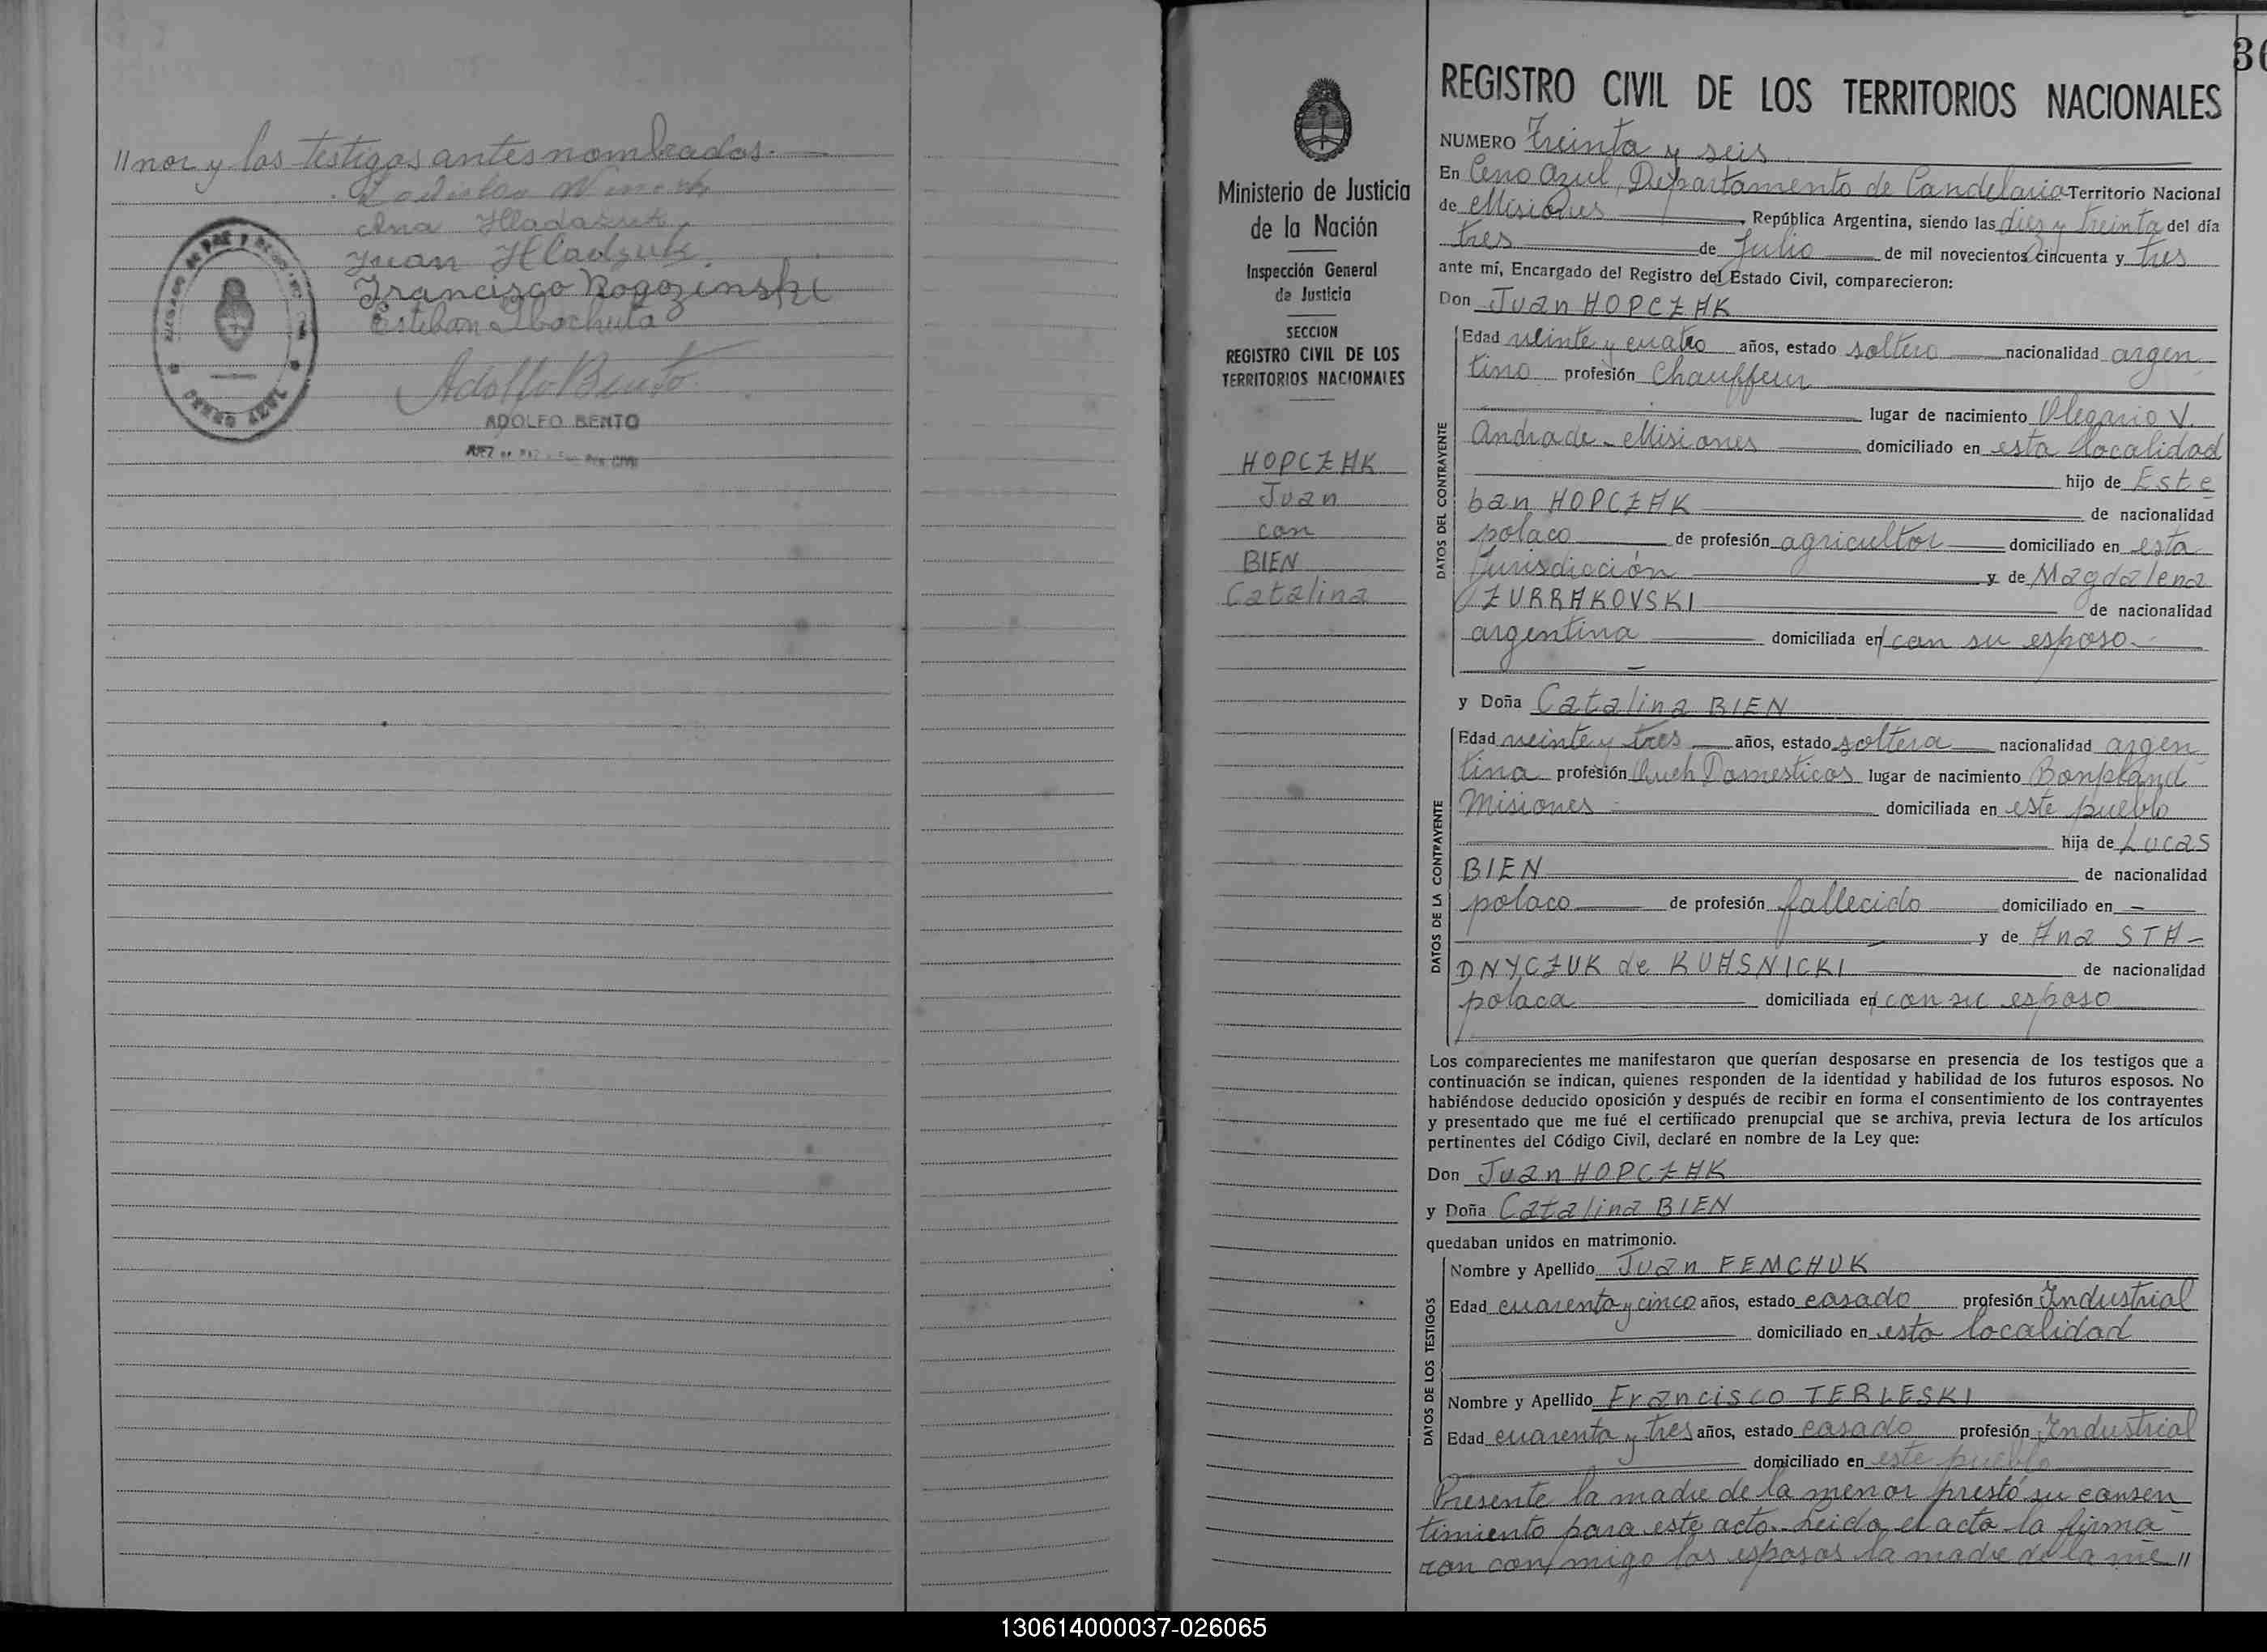 "nor y los testigos antes nombrados.
Ana Hladazuk
Juan Hladzuk
Francisco Rogozinski
Esteban
Adolfo Bento
ADOLFO BENTO
JUEZ DE PAZ
36
REGISTRO CIVIL DE LOS TERRITORIOS NACIONALES
Ministerio de Justicia
de la Nación
Inspección General
de Justicia
SECCION
REGISTRO CIVIL DE LOS
TERRITORIOS NACIONALES
HOPCZAK
Juan
con
BIEN
Catalina
NUMERO Treinta y seis
En Cerro Azul, Departamento de Candelaria Territorio Nacional
de Misiones República Argentina, siendo las diez y treinta del día
tres de Julio de mil novecientos cincuenta y tres
ante mí, Encargado del Registro del Estado Civil, comparecieron:
Don Juan HOPCZAK
DATOS DEL CONTRAYENTE
Edad veinte y cuatro años, estado soltero nacionalidad argen
tino profesión Chauffeur
lugar de nacimiento Olegario V.
Andrade - Misiones domiciliado en esta localidad
hijo de Este
ban HOPCZAK de nacionalidad
polaco de profesión agricultor domiciliado en esta
Jurisdicción y de Magdalena
ZURRAKOVSKI de nacionalidad
argentina domiciliada en/ con su esposo.-
y Doña Catalina BIEN
DATOS DE LA CONTRAYENTE
Edad veinte y tres años, estado soltera nacionalidad argen
tina profesión Queh Domesticos lugar de nacimiento Bonpland
Misiones domiciliada en este pueblo
hija de Lucas
BIEN de nacionalidad
polaco de profesión fallecido domiciliado en -
y de Ana STA-
DNYCZUK de KUASNICKI de nacionalidad
polaca domiciliada en/ con su esposo
Los comparecientes me manifestaron que querían desposarse en presencia de los testigos que a
continuación se indican, quienes responden de la identidad y habilidad de los futuros esposos. No
habiéndose deducido oposición y después de recibir en forma el consentimiento de los contrayentes
y presentado que me fué el certificado prenupcial que se archiva, previa lectura de los artículos
pertinentes del Código Civil, declaré en nombre de la Ley que:
Don Juan HOPCZAK
y Doña Catalina BIEN
quedaban unidos en matrimonio.
DATOS DE LOS TESTIGOS
Nombre y Apellido Juan FEMCHUK
Edad cuarenta y cinco años, estado casado profesión Industrial
domiciliado en esta localidad
Nombre y Apellido Francisco TERLESKI
Edad cuarenta y tres años, estado casado profesión Industrial
domiciliado en este pueblo
Presente la madre de la menor prestó su consen
timiento para este acto. Leida el acta la firma
ron con/migo los esposos la madre de la me"
130614000037-026065